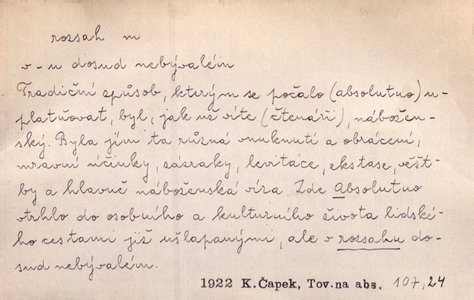 rozsah m
v -u dosud nebývalém
Tradiční způsob, kterým se počalo (absolutno) u-
platňovat, byl, jak už víte (čtenáři), nábožen-
ský. Byla jím ta různá vnuknutí a obrácení,
mravní účinky, zázraky, levitace, ekstase, věšt-
by a hlavně náboženská víra. Zde Absolutno
vtrhlo do osobního a kulturního života lidské-
ho cestami již ušlapanými, ale v rozsahu do-
sud nebývalém.
1922 K.Čapek, Tov.na abs. 107,24